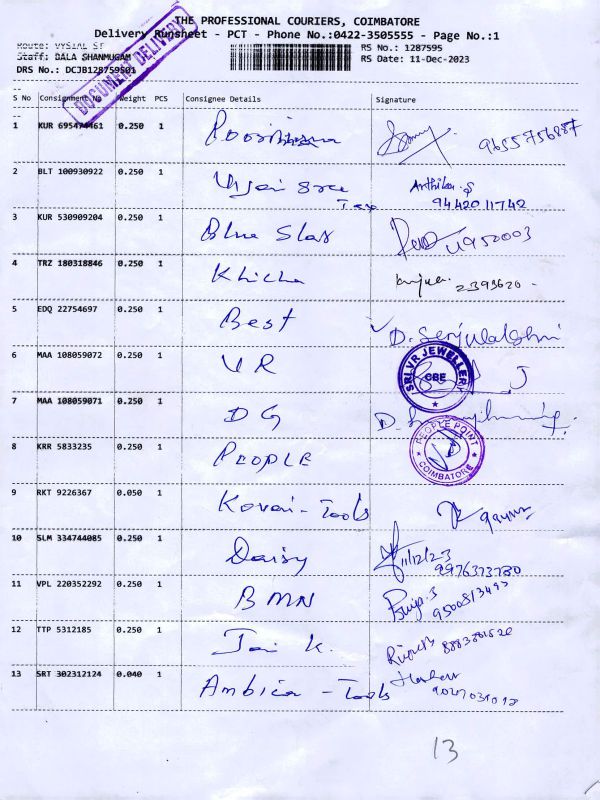 THE PROFESSIONAL COURIERS, COIMBATORE
Delivery Runsheet - PCT - Phone No.:0422-3505555 - Page No.:1
Route: VYSIAL ST
RS No.: 1287595
Staff: BALA SHANMUGAM
RS Date: 11-Dec-2023
DRS No.: DCJB128759501
DOCUMENT DELIVERY
S No Consignment No Weight PCS Consignee Details Signature
1 KUR 695474461 0.250 1 9655756887
2 BLT 100930922 0.250 1 Vijai Sree Tex 9442011742
3 KUR 530909204 0.250 1 Blue Star
4 TRZ 180318846 0.250 1 2393620
5 EDQ 22754697 0.250 1 Best
6 MAA 108059072 0.250 1 VR SRI VR JEWELLERY CBE
7 MAA 108059071 0.250 1 DG
8 KRR 5833235 0.250 1 PEOPLE PEOPLE POINT COIMBATORE
9 RKT 9226367 0.050 1 Kovai - Tools
10 SLM 334744085 0.250 1 Daisy 11/12/23
9976373730
11 VPL 220352292 0.250 1 BMN
12 TTP 5312185 0.250 1 Jai K.
13 SRT 302312124 0.040 1 Ambica - Tools
13